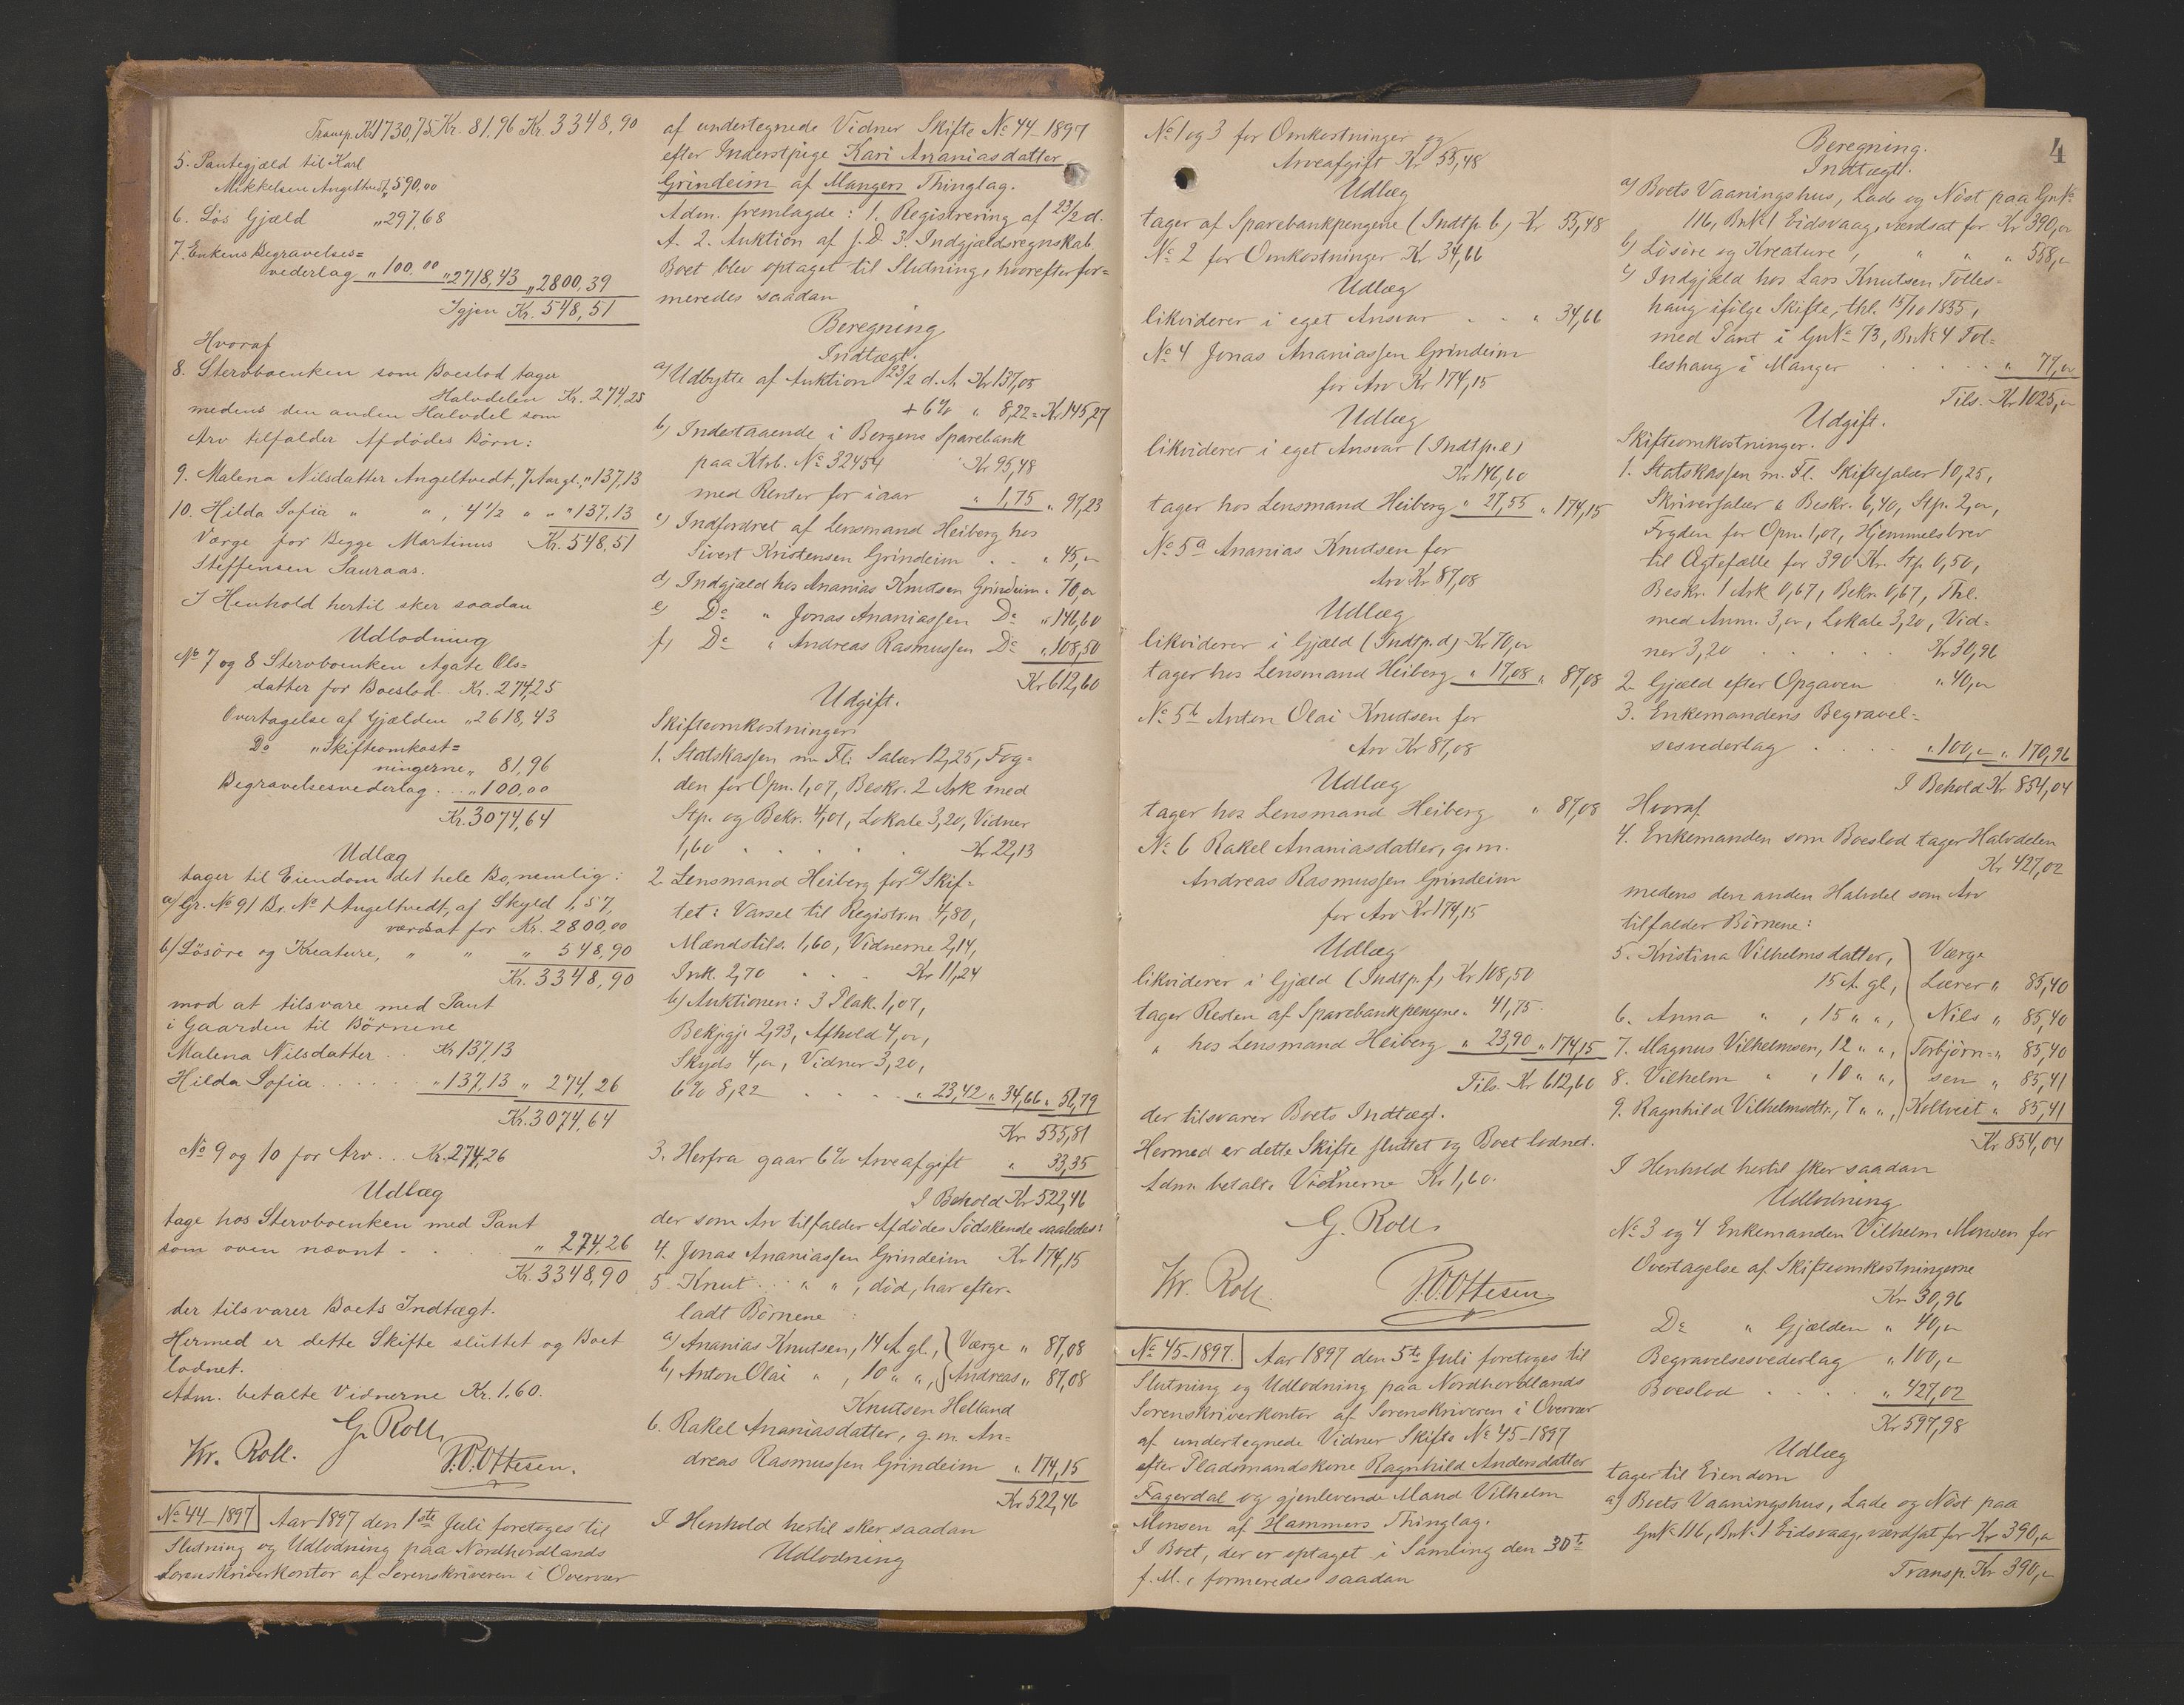 Transp. Kr. 1730,75 Kr. 81,96 Kr. 3348,90
5. Pantegjæld til Karl
Mikkelsen Angeltvedt „ 590,00
6. Løs Gjæld „ 297,68
7. Enkens Begravelses=
vederlag „ 100,00 „ 2718,43 „ 2800,39
Igjen Kr. 548,51
Hvoraf
8. Stervboenken som Boeslod tager
Halvdelen Kr. 274,25
medens den anden Halvdel som
Arv tilfalder Afdødes Børn:
9. Malena Nilsdatter Angeltvedt, 7 Aar gl. „ 137,13
10. Hilda Sofia „ „ , 4 1/2 „ „ „ 137,13
Værge for Begge Martinus Kr. 548,51
Steffensen Sauraas.
I Henhold hertil sker saadan
Udlodning
No 7 og 8 Stervboenken Agate Ols=
datter for Boeslod .. Kr. 274,25
Overtagelse af Gjælden „ 2618,43
Do „ Skifteomkost=
ningerne „ 81,96
Begravelsesvederlag . . „ 100,00
Kr. 3074,64
Udlæg
tager til Eiendom det hele Bo, nemlig:
a) Gr. No 91 Br. No 1 Angeltvedt, af Skyld 1,57,
værdsat for Kr. 2800,00
b) Løsøre og Kreature, „ „ „ 548,90
Kr. 3348,90
mod at tilsvare med Pant
i Gaarden til Børnene
Malena Nilsdatter .. Kr 137,13
Hilda Sofia . . . . . „ 137,13 „ 274,26
Kr. 3074,64
No 9 og 10 for Arv . . Kr. 274,26
Udlæg
tage hos Stervboenken med Pant
som oven nævnt - . . . „ 274,26
Kr. 3348,90
der tilsvarer Boets Indtægt.
Hermed er dette Skifte sluttet og Boet
lodnet.
Adm. betalte Vidnerne Kr. 1,60.
G. Roll
Kr. Roll. P.O. Ottesen.
No 44-1897 Aar 1897 den 1ste Juli foretoges til
Slutning og Udlodning paa Nordhordlands
Sorenskriverkontor af Sorenskriveren i Overvær
af undertegnede Vidner Skifte No 44-1897
efter Inderstpige Kari Ananiasdatter
Grindeim af Mangers Thinglag.
Adm. fremlagde: 1. Registrering af 23/2 d.
A. 2. Auktion af s. D. 3. Indgjældsregnskab.
Boet blev optaget til Slutning, hvorefter for=
meredes saadan
Beregning
Indtægt.
a) Udbytte af Auktion 23/2 d. A. Kr 137,05
+ 6% „ 8,22 = Kr. 145,27
b) Indestaaende i Bergens Sparebank
paa Ktrb. No 32454 Kr 95,48
med Renter for iaar „ 1,75 „ 97,23
c) Indfordret af Lensmand Heiberg hos
Sivert Kristensen Grindeim . . „ 45,„
d) Indgjæld hos Ananias Knutsen Grindeim „ 70,„
e) Do „ Jonas Ananiassen Do „ 146,60
f) Do „ Andreas Rasmussen Do „ 108,50
Kr 612,60
Udgift.
Skifteomkostninger:
1. Statskassen m. Fl: Salær 12,25, Fog=
den for Opn. 1,07, Beskr. 2 Ark med
Stp. og Bekr. 4,01, Lokale 3,20, Vidner
1,60 . . . . . Kr 22,13
2. Lensmand Heiberg for a) Skif=
tet: Varsel til Registr.n 4,80,
Mændstils. 1,60, Vidnerne 2,14,
Ink. 2,70 . . . Kr 11,24
b) Auktionen: 3 Plak. 1,07,
Bekjgj. 2,93, Afhold 4,„,
Skyds 4,„, Vidner 3,20,
6% 8,22 . . . . „ 23,42 „ 34,66 „ 56,79
Kr 555,81
3. Herfra gaar 6% Arveafgift „ 33,35
I Behold Kr 522,46
der som Arv tilfalder Afdødes Sødskende saaledes:
4. Jonas Ananiassen Grindeim Kr 174,15
5. Knut . . „ „ , død, har efter-
ladt Børnene :
a) Ananias Knutsen, 14 A. gl., Værge „ 87,08
b) Anton Olai „ , 10 „ „ , Andreas „ 87,08
Knutsen Helland
6. Rakel Ananiasdatter, g. m. An=
dreas Rasmussen Grindeim „ 174,15
Kr 522,46
I Henhold hertil sker saadan
Udlodning
No 1 og 3 for Omkostninger og
Arveafgift Kr 55,48
Udlæg
tager af Sparebankpengene (Indtp. b) Kr 55,48
No 2 for Omkostninger Kr 34,66
Udlæg
likviderer i eget Ansvar . . „ 34,66
No 4 Jonas Ananiassen Grindeim
for Arv Kr 174,15
Udlæg
likviderer i eget Ansvar (Indtp. e)
Kr 146,60
tager hos Lensmand Heiberg „ 27,55 „ 174,15
No 5a Ananias Knutsen for
Arv Kr 87,08
Udlæg
likviderer i Gjæld (Indtp. d) Kr 70,„
tager hos Lensmand Heiberg „ 17,08 „ 87,08
No 5b Anton Olai Knutsen for
Arv Kr 87,08
Udlæg
tager hos Lensmand Heiberg „ 87,08
No 6 Rakel Ananiasdatter, g. m.
Andreas Rasmussen Grindeim
for Arv Kr 174,15
Udlæg
likviderer i Gjæld (Indtp. f) Kr 108,50
tager Resten af Sparebankpengene „ 41,75.
„ hos Lensmand Heiberg „ 23,90 „ 174,15
Tils. Kr 612,60
der tilsvarer Boets Indtægt.
Hermed er dette Skifte sluttet og Boet lodnet.
Adm. betalte Vidnerne Kr 1,60.
G. Roll
Kr. Roll. P.O. Ottesen
No 45-1897. Aar 1897 den 5te Juli foretoges til
Slutning og Udlodning paa Nordhordlands
Sorenskriverkontor af Sorenskriveren i Overvær
af undertegnede Vidner Skifte No 45-1897
efter Pladsmandskone Ragnhild Andersdatter
Fagerdal og gjenlevende Mand Vilhelm
Monsen af Hammers Thinglag.
I Boet, der er optaget i Samling den 30te
f. M., formeredes saadan
4
Beregning.
Indtægt.
a) Boets Vaaningshus, Lade og Nøst paa GnNo
116, BnNo 1 Eidsvaag, værdsat for Kr 390,„
b) Løsøre og Kreature, „ „ „ 558,„
c) Indgjæld hos Lars Knutsen Tolles=
haug ifølge Skifte, thl. 15/10 1855,
med Pant i GnNo 73, BnNo 4 Tol=
leshaug i Manger . . . . . „ 77,„
Tils. Kr 1025,„
Udgift.
Skifteomkostninger.
1. Statskassen m. Fl. Skiftesalær 10,25,
Skriversalær a Beskr. 6,40, Stp. 2,„,
Fogden for Opn. 1,07, Hjemmelsbrev
til Ægtefælle for 390 Kr. Stp. 0,50,
Beskr. 1 Ark 0,67, Bekr. 0,67, Thl.
med Anm. 3,„, Lokale 3,20, Vid=
ner 3,20 . . . . . Kr 30,96
2. Gjæld efter Opgaven „ 40,„
3. Enkemandens Begravel=
sesvederlag . . . . „ 100,„ „ 170,96
I Behold Kr 854,04
Hvoraf
4. Enkemanden som Boeslod tager Halvdelen
Kr 427,02
medens den anden Halvdel som Arv
tilfalder Børnene:
5. Kristina Vilhelmsdatter, Værge
15 A. gl., Lærer „ 85,40
6. Anna „ , 15 „ „ , Nils „ 85,40
7. Magnus Vilhelmsen, 12 „ „ , Torbjørn= „ 85,40
8. Vilhelm „ , 10 „ „ , sen „ 85,41
9. Ragnhild Vilhelmsdtr., 7 „ „ , Koltveit „ 85,41
Kr 854,04
I Henhold hertil sker saadan
Udlodning
No 3 og 4 Enkemanden Vilhelm Monsen for
Overtagelse af Skifteomkostningerne
Kr 30,96
Do „ Gjælden „ 40,„
Begravelsesvederlag „ 100,„
Boeslod . . . . „ 427,02
Kr 597,98
Udlæg
tager til Eiendom
a) Boets Vaaningshus, Lade og Nøst paa
GnNo 116, BnNo 1 Eidsvaag, værdsat for Kr 390,„
Transp. Kr 390,„